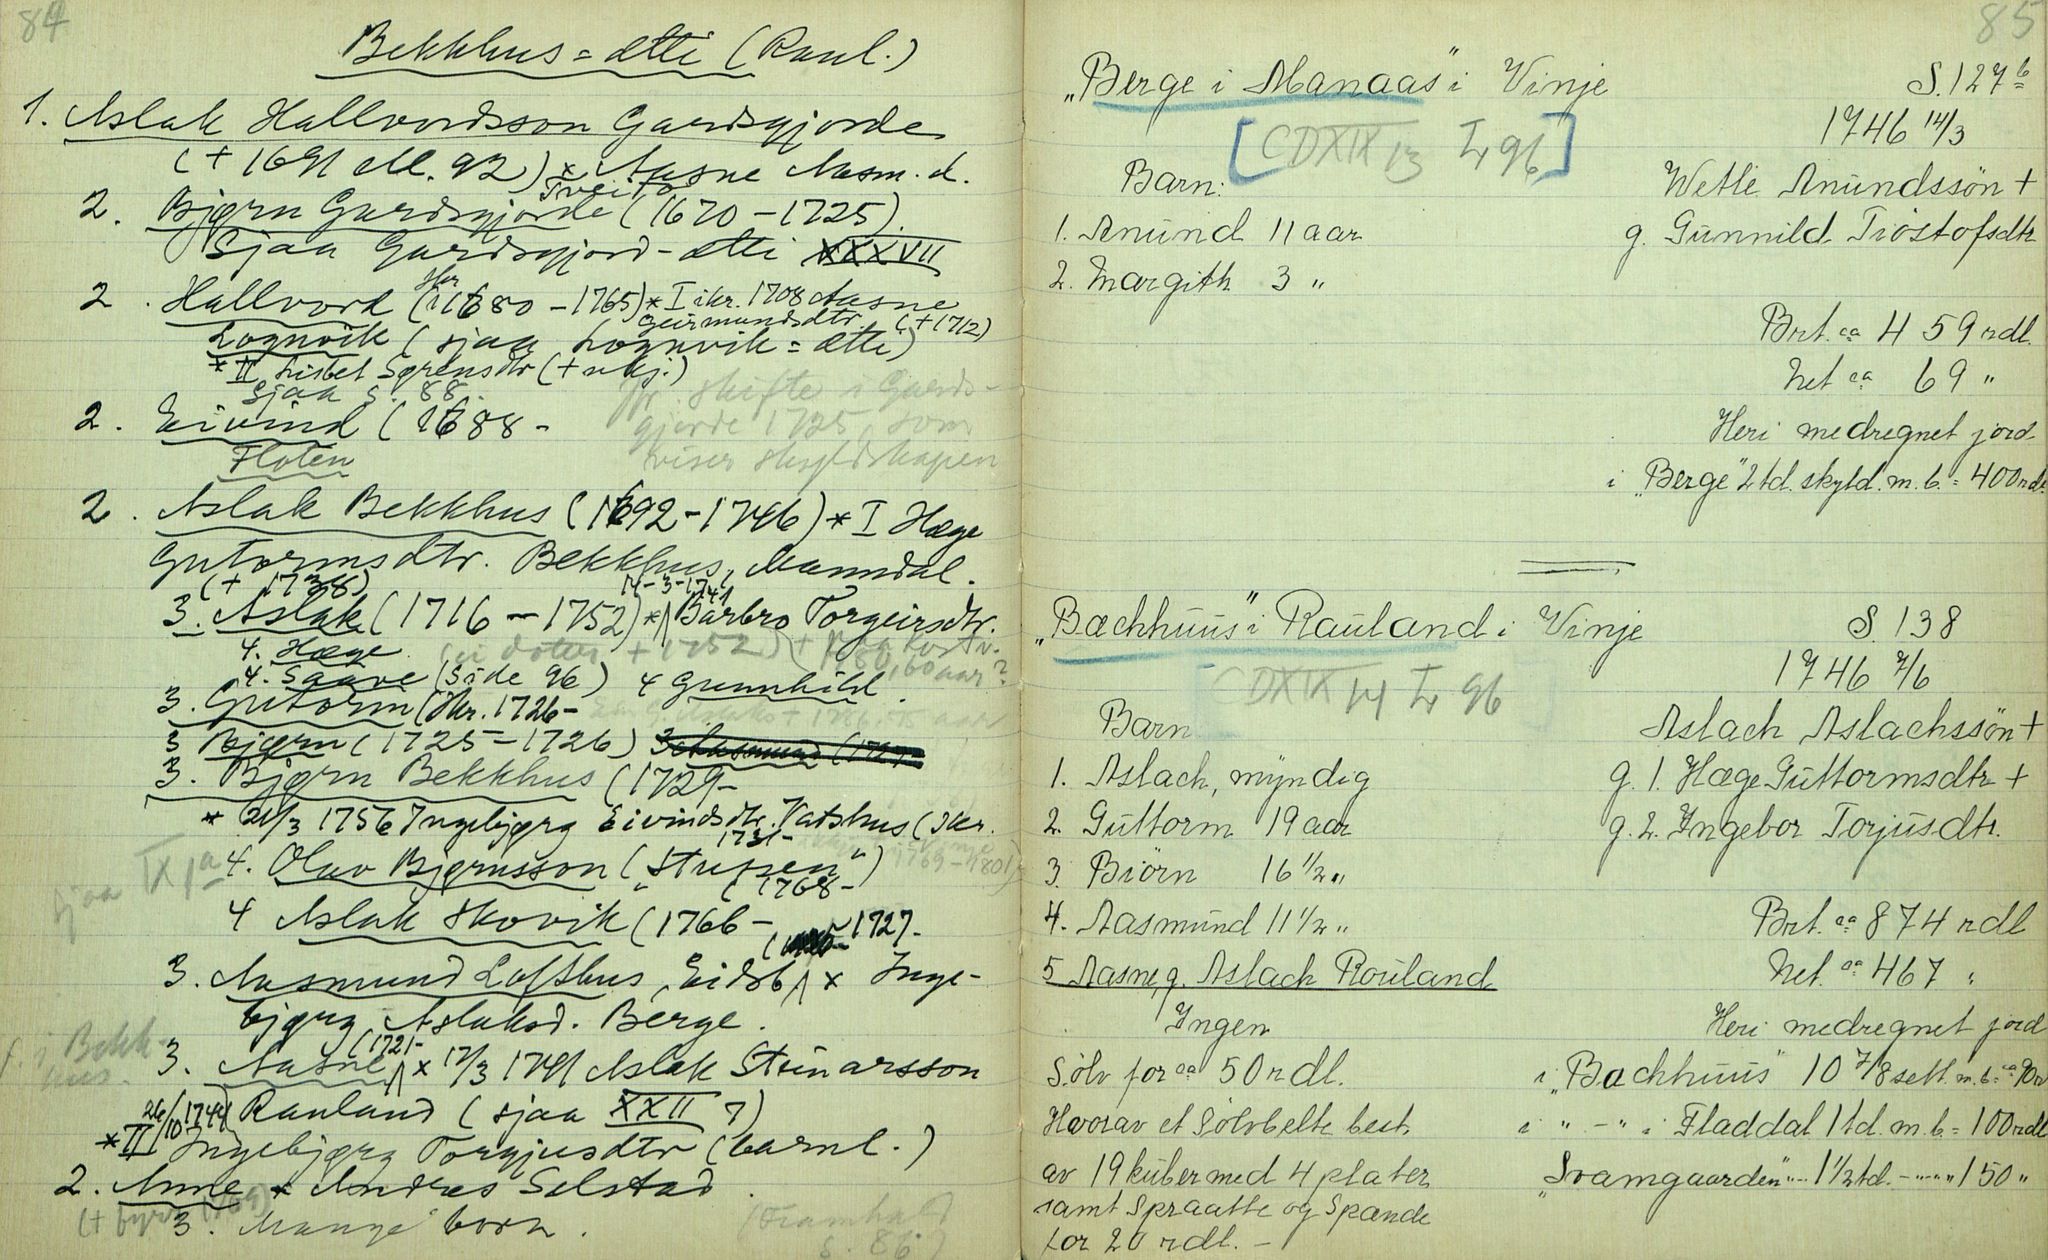 84
Bekkhus = ætti (Raul.)
1. Aslak Hallvordsson Gardsgjorde
(+ 1691 92) × Aasne Aasm. d.
Tveito
2. Bjørn Gardsgjorde (1670 – 1725)
Sjaa Gardsgjord-ætti XXXVII
2. Hallvord (1680 – 1765) * I ikr. 1708 Aasne
Geirmundsdtr. (+ 1712)
Lognvik (sjaa Lognvik = ætti)
* II Lisbet Sørensdtr (+ ukj.)
Sjaa s. 88.
jfr. skifte i Gards-
gjorde 1725, som
viser skyldskapen
2. Eivind (1688 –
Floten
2. Aslak Bekkhus (1692 – 1746) * I Hæge
Gutormsdtr. Bekkhus, Manndal.
(+ 1738)
14-3-1741
3. Aslak (1716 – 1752) * Barbro Torgeirsdtr.
4. Hæge (ei dotter + 1752) +
1780, 60 aar?
4. Saave (Side 96) 4 Gunnhild.
3. Gutorm (Ikr. 1726 –
3 Bjørn (1725 – 1726)
3. Bjørn Bekkhus (1729 –
* 21/3 1756 Ingebjørg Eivindsdtr. Vatshus (Ikr.
1731 –
sjaa IX 1a
4. Olav Bjørnsson („Stupen")
(1768 –
4 Aslak Skovik (1766 –
1727 –
3. Aasmund Lofthus, Eidsb × Inge-
bjørg Aslaksd. Berge.
f. i Bekk-
hus.
(1721 –
3. Aasne × 17/3 1741 Aslak Steinarsson
Rauland (sjaa XXII 7)
26/10 1744
* II Ingebjørg Torgjusdtr (barnl.)
2. Anne * Andres Selstad.
3. Mange born.
(Framhald
s. 86)
85
„Berge i Manaas" i Vinje S. 127 b
[CDXIX 13 I 96] 1746 14/3
Barn: Wetle Anundssön +
1. Anund 11 aar g. Gunnild Tröstofsdtr
2. Margith 3 „
Brt. ca 459 rdl.
Net ca 69 „
Heri medregnet jord
i „Berge" 2 td. skyld. m. b. = 400 rdl.
„Bæchhuus" i Rauland i Vinje S. 138
CDXIX 14 I 96 1746 7/6
Barn Aslach Aslachssön +
1. Aslach, myndig g. 1. Hæge Guttormsdtr +
2. Guttorm 19 aar g. 2. Ingebor Torjusdtr.
3. Biörn 16 1/2 „
4. Aasmund 11 1/2 „ Brt. ca 874 rdl
5 Aasne, g. Aslach Rouland Net. ca 467 „
Ingen Heri medregnet jord
Sölv for ca 50 rdl. i „Bachhuus" 10 7/8 sett. m. b.
Hvorav et Sölvbelte best. i „ – " i Fladdal 1 td. m. b. = 100 rdl
av 19 kuber med 4 plater „Svamgaarden" 1 1/2 td. 150 „
samt Spraatte og Spænde
for 20 rdl. –